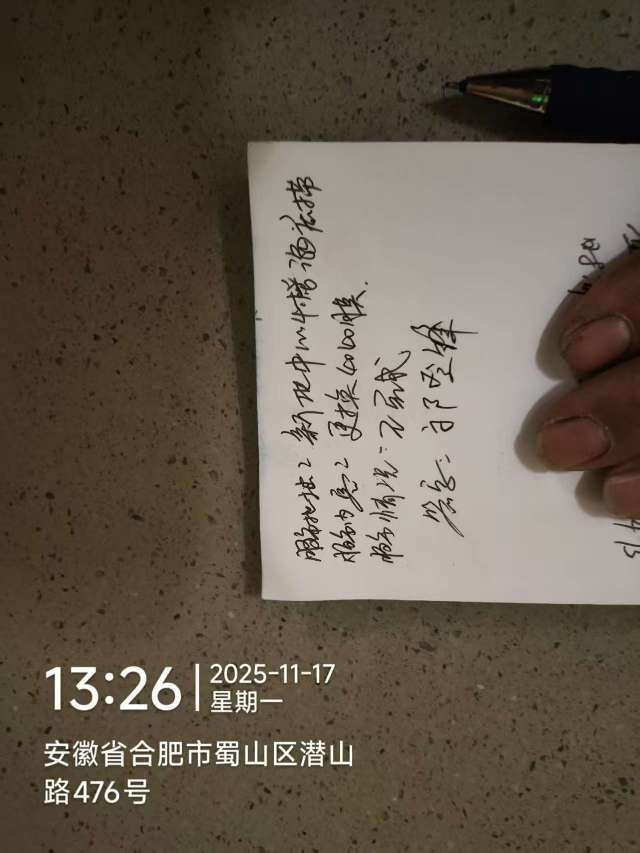 服务地址：新地中心4楼海底捞
服务内容：更换LOGO膜
服务情况：已完成
签字：
13:26
2025-11-17
星期一
安徽省合肥市蜀山区潜山
路476号